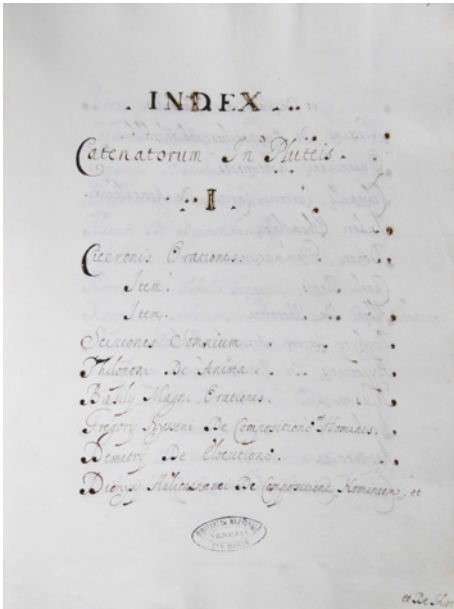 INDEX
Catenatorum In Pluteis.
I
Ciceronis Orationes
Item.
Item.
Scipiones Somnium
Philoponi De Anima
Basilij Magni Orationes.
Gregorij Nysseni De Compositione Hominis.
Demetrij De Elocutione.
Dionysij Halicarnassei De Compositione Nominum, et
VENEZIA
et De